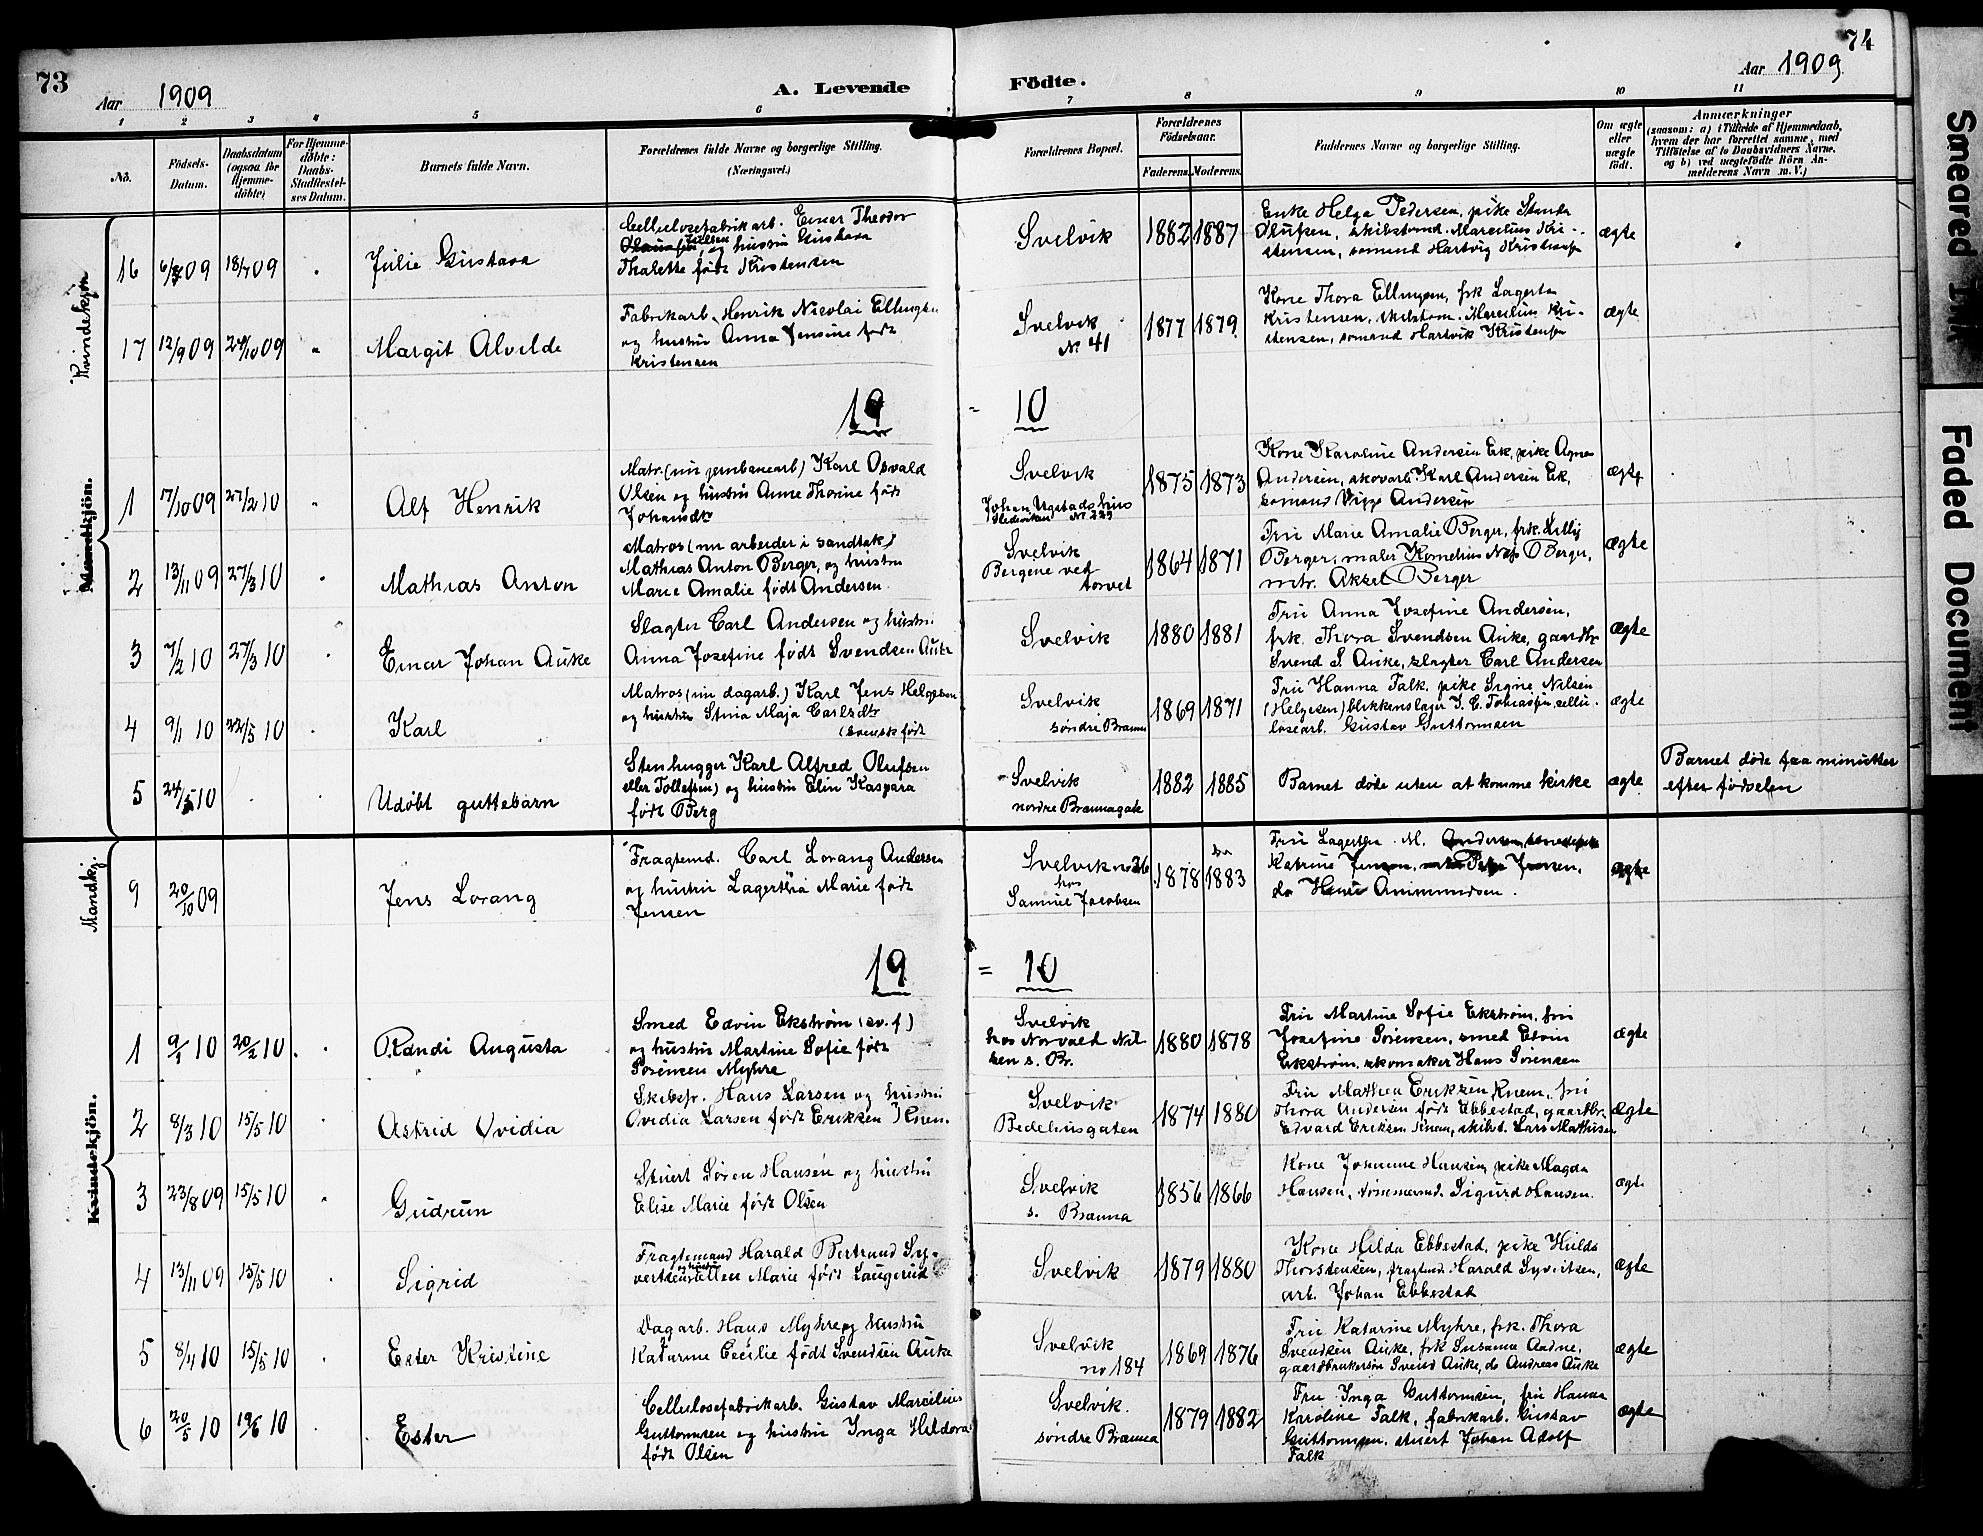 73
Aar 1909
A. Levende
Födte.
74
Aar 1909
1 2 3 4 5 6 7 8 9 10 11
No.
Födsels-Datum.
Daabsdatum (ogsaa for Hjemme-döbte)
For Hjemme-döbte: Daabs-Stadfæstel-ses Datum.
Barnets fulde Navn.
Forældrenes fulde Navne og borgerlige Stilling.
(Næringsvei.)
Forældrenes Bopæl.
Forældrenes Födselsaar.
Faderens. Moderens.
Faddernes Navne og borgerlige Stilling.
Om ægte eller uægte födt.
Anmærkninger
(saasom: a) i Tilfælde af Hjemmedaab,
hvem der har forrettet samme, med
Tilföielse af to Daabsvidners Navne,
og b) ved uægtefödte Börn An-
melderens Navn m. V.)
Kvindekjøn
16 6/7 09 18/7 09 Julie Gustava
Cellulosefabrikarb. Einar Theodor
og hustru Gustava
Thalette født Kristensen
Svelvik
1882 1887
Enke Helga Pedersen, pike Standa
Olufsen, skibstømd. Marcelius Kri-
stensen, sømand Hartvig Kristensen
ægte
17 12/9 09 24/10 09 Margit Alvilde
Fabrikarb. Henrik Nicolai Ellingsen
og hustru Anna Jensine født
Kristensen
Svelvik
No 41
1877 1879
Kone Thora Ellingsen, frk Lagerta
Kristensen, skibstøm. Marcelius Kri-
stensen, sømand Hartvik Kristensen
ægte
19 = 10
Mandkjön.
1 17/10 09 27/2 10 Alf Henrik
Matr. (nu jernbanearb) Karl Osvald
Olsen og hustru Anne Thorine født
Johansdtr
Svelvik
Johan Ugstads hus
No 229
1875 1873
Kone Karoline Andersen Ek, pike Agna
Andersen, skovarb. Karl Andersen Ek,
sømand Viggo Andersen
ægte
2 13/11 09 27/3 10 Mathias Anton
Matros (nu arbeider i sandtak)
Mathias Anton Berger, og hustru
Marie Amalie født Andersen
Svelvik
Bergene ved
torvet
1864 1871
Fru Marie Amalie Berger, frk. Lilly
Berger, maler Kornelius Berger,
mtr. Aksel Berger
ægte
3 7/2 10 27/3 10 Einar Johan Auke
Slagter Carl Andersen og hustru
Anna Josefine født Svendsen Auke
Svelvik
1880 1881
Fru Anna Josefine Andersen,
frk. Thora Svendsen Auke, gaardbr.
Svend S. Auke, slagter Carl Andersen
ægte
4 9/1 10 22/5 10 Karl
Matros (nu dagarb.) Karl Jens Helgesen
og hustru Stina Maja Carlsdtr
(svensk født
Svelvik
søndre Brænna
1869 1871
Fru Hanna Falk, pike Signe Nilsen
(Helgesen) blikkenslager J. C. Tobiassen, cellu-
losearb. Gustav Guttormsen
ægte
5 24/5 10 Udøbt guttebarn
Stenhugger Karl Alfred Olufsen
eller Tollefsen) og hustru Elin Kaspara
født Berg
Svelvik
nordre Brænnagate
1882 1885
Barnet døde uten at komme kirke
ægte
Barnet døde faa minutter
efter fødselen
Mandkj.
9 20/10 09 Jens Lorang
Fragtemd. Carl Lorang Andersen
og hustru Lagertha Marie født
Jensen
Svelvik no 26
hos
Samuel Jacobsen
1878 1883
Fru Lagertha M. Andersen,
Katrine Jensen, Jensen,
do Hans Anmundsen.
ægte
19 = 10
Kvindekjön.
1 9/1 10 20/2 10 Randi Augusta
Smed Edvin Ekstrøm (sv. f.)
og hustru Martine Sofie født
Sørensen Myhre
Svelvik
hos Norvald Nil
sen s. Br.
1880 1878
Fru Martine Sofie Ekstrøm, fru
Josefine Sørensen, smed Edvin
Ekstrøm, skomaker Hans Sørensen
ægte
2 8/3 10 15/5 10 Astrid Ovidia
Skibsfr. Hans Larsen og hustru
Ovidia Larsen født Eriksen Knem.
Svelvik
Bedehusgaten
1874 1880
Fru Mathea Eriksen Knem, fru
Thora Andersen født Ebbestad, gaardbr.
Edvard Eriksen Knem, skibst. Lars Mathisen
ægte
3 23/8 09 15/5 10 Gudrun
Stuert Søren Hansen og hustru
Elise Marie født Olsen
Svelvik
s. Brænna
1856 1866
Kone Johanne Hansen, pike Magda
Hansen, tømmermd. Sigurd Hansen.
ægte
4 13/11 09 15/5 10 Sigrid
Fragtemand Harald Bertrand Sy-
vertsen og hustru Ellen Marie født Laugerud
Svelvik
1879 1880
Kone Hilda Ebbestad, pike Hulda
Thorstensen, fragtmd. Harald Syvertsen,
arb. Johan Ebbestad
ægte
5 8/4 10 15/5 10 Ester Kristine
Dagarb. Hans Myhre og hustru
Katarine Cecilie født Svendsen Auke
Svelvik
no 184
1869 1876
Fru Katarine Myhre, frk. Thora
Svendsen Auke, frk Susanna Aadne,
gaardbrukersøn Svend Auke, do Andreas Auke
ægte
6 20/5 10 19/6 10 Ester
Cellulosefabrikarb. Gustav Marcelius
Guttormsen og hustru Inga Hildora
født Olsen
Svelvik.
søndre Brænna
1879 1882
Fru Inga Guttormsen, fru Hanna
Karoline Falk, fabrikarb. Gustav
Guttormsen, stuert Johan Adolf
Falk
ægte
Smeared Ink
Faded Document